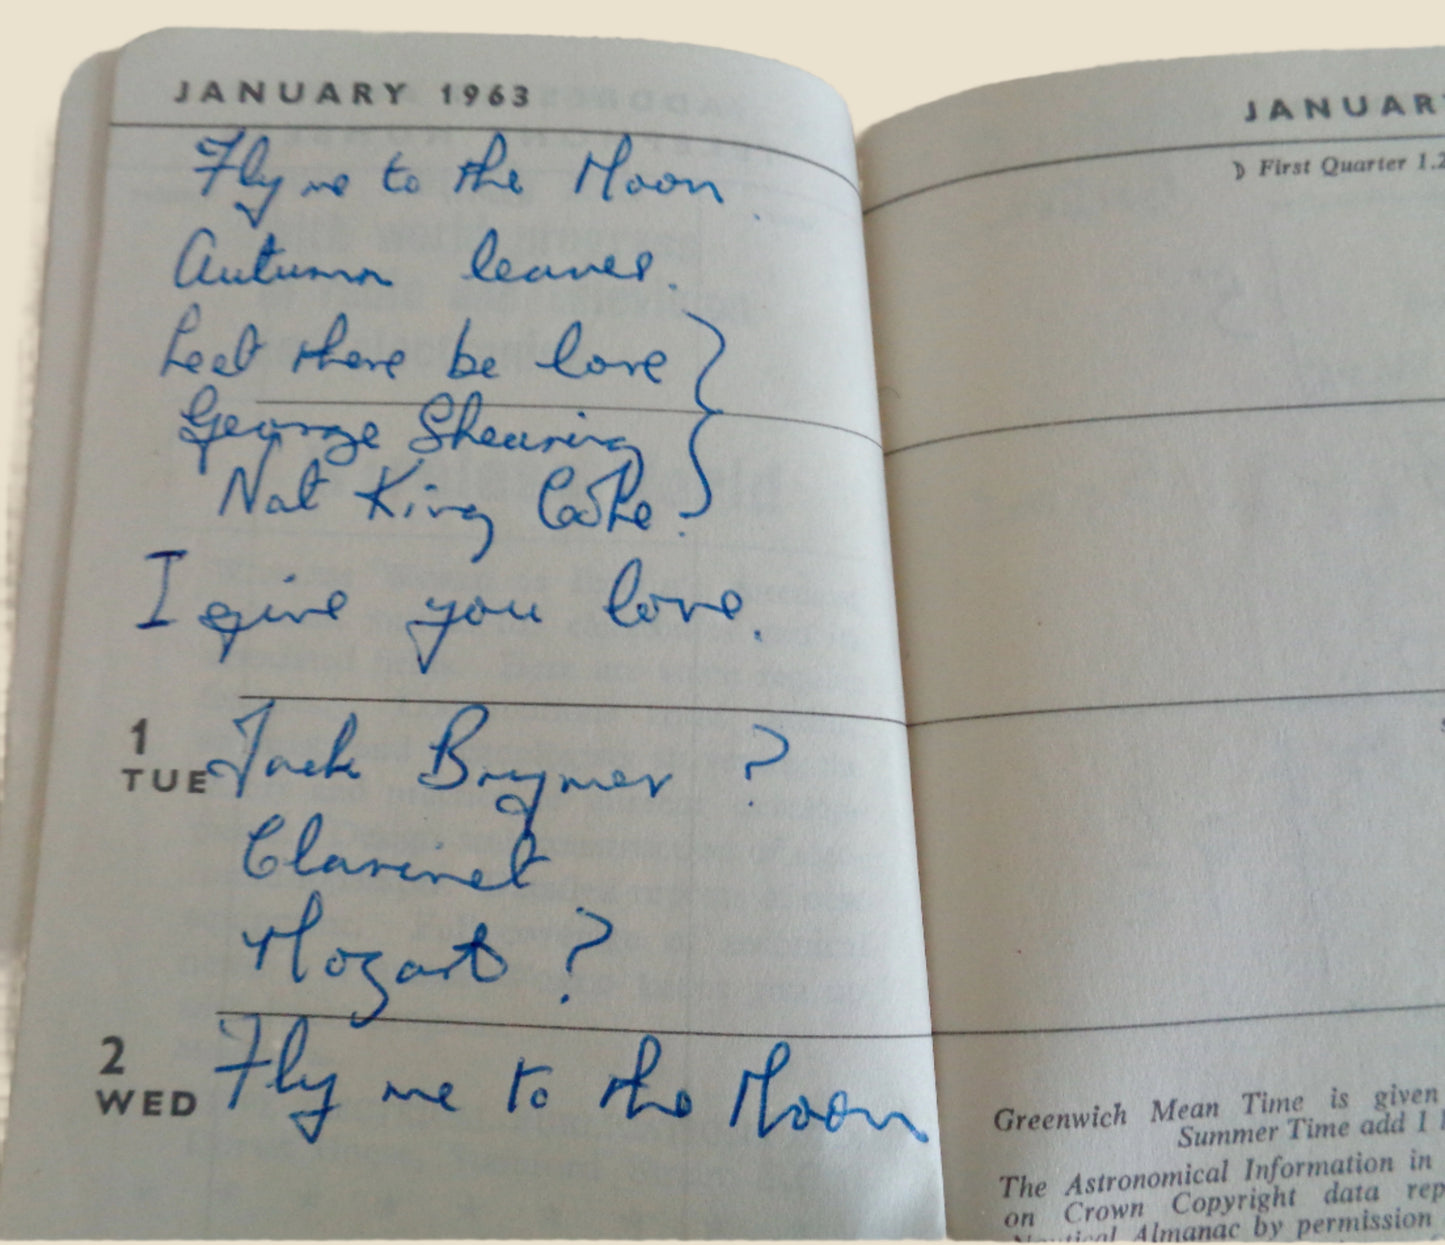 JANUARY 1963
Fly me to the Moon.
Autumn leaves.
Leet there be love
George Shearing
Nat King Cole.
I give you love.
1
TUE
Jack Brymer ?
Clarinet
Mozart ?
2
WED
Fly me to the Moon
JANUAR
☽ First Quarter 1.2
Greenwich Mean Time is given
Summer Time add 1
The Astronomical Information in
on Crown Copyright data rep
Nautical Almanac by permission